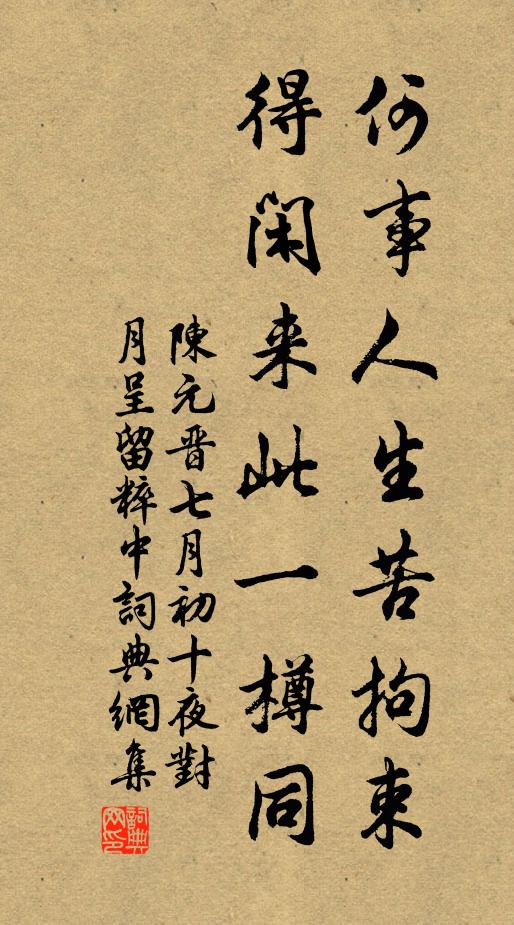 何事人生苦拘束
得閑来此一樽同
陳元晋七月初十夜對
月呈留粹中詞典網集
詞典网印